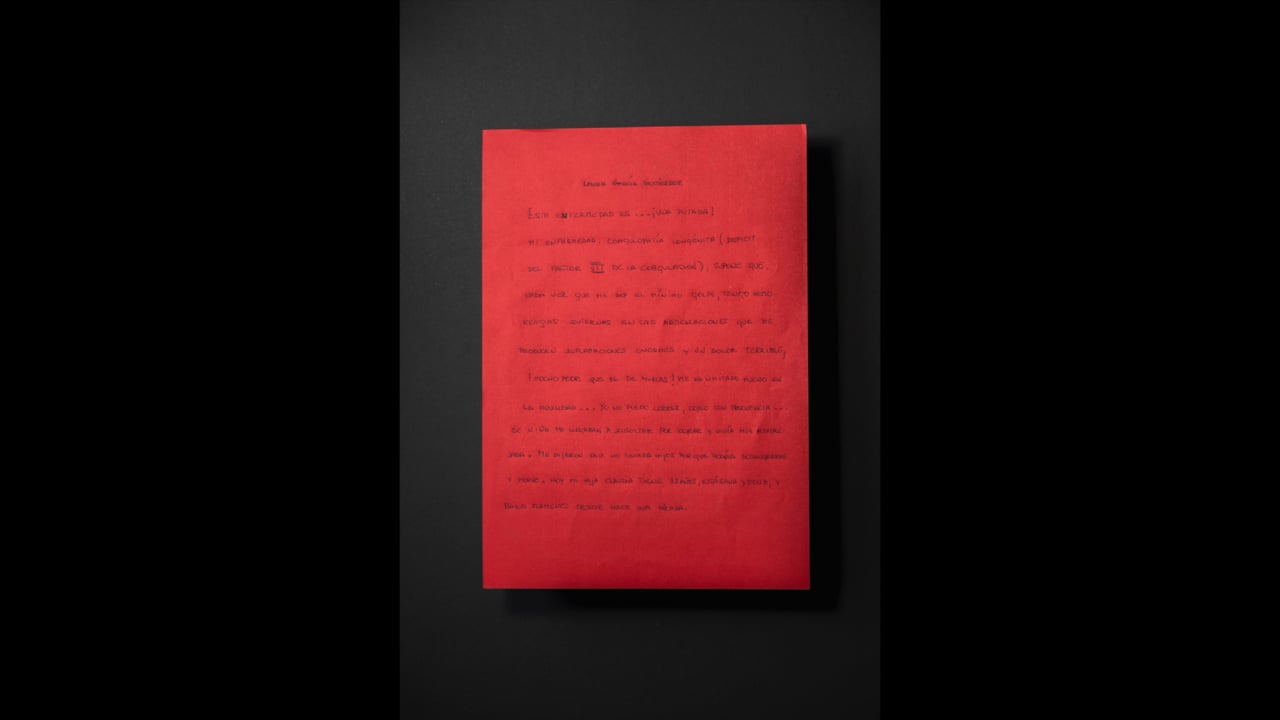 LAURA GARCÍA GUTIÉRREZ
ESTA ENFERMEDAD ES... ¡UNA PUTADA!
MI ENFERMEDAD, COAGULOPATÍA CONGÉNITA (DÉFICIT
DEL FACTOR VII DE LA COAGULACIÓN), SUPONE QUE,
CADA VEZ QUE ME DOY EL MÍNIMO GOLPE, TENGO HEMO-
RRAGIAS INTERNAS EN LAS ARTICULACIONES QUE ME
PRODUCEN INFLAMACIONES ENORMES Y UN DOLOR TERRIBLE,
¡MUCHO PEOR QUE EL DE MUELAS! ME HA LIMITADO MUCHO EN
LA MOVILIDAD... YO NO PUEDO CORRER, DEBO SER PRUDENCIA...
DE NIÑA ME LLEGABAN A INSULTAR POR COJEAR Y VIVÍA MUY
. ME DIJERON QUE NO TENDRÍA HIJOS PORQUE PODRÍA DESANGRARME
Y MORIR. HOY MI HIJA CLAUDIA TIENE AÑOS, ESTÁ SANA Y FELIZ, Y
BAILO FLAMENCO DESDE HACE UNA DÉCADA.